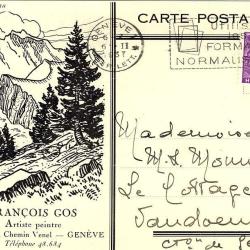 CARTE POSTA
GENÈVE
6-II
LETT.
UTILI
FORM
NORMALIS
FRANÇOIS GOS
Artiste peintre
Chemin Venel — GENÈVE
Téléphone 48.684
Mademoise
M.
Le Cottage
Vandoeu